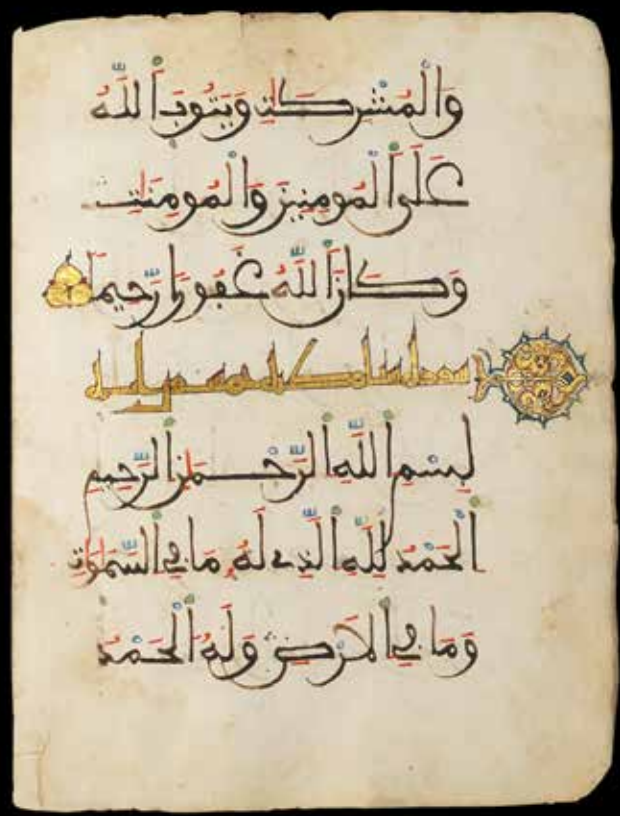 وَالْمُشْرِكَٰتِ وَيَتُوبَ اَللَّهُ
عَلَى اَلْمُومِنِينَ وَالْمُومِنَٰتِ
وَكَانَ اَللَّهُ غَفُورًا رَّحِيمًا
سورة سبا مكية
بِسْمِ اِللَّهِ اِلرَّحْمَٰنِ اِلرَّحِيمِ
اَلْحَمْدُ لِلَّهِ اِلَّذِے لَهُ مَا فِے اِلسَّمَٰوَٰتِ
وَمَا فِے اِلَارْضِ وَلَهُ اُلْحَمْدُ